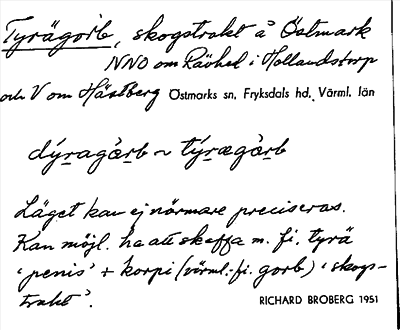 Tyrägorb, skogstrakt å Östmark
NNO om i Hollandstorp
och V om Häslberg Östmarks sn, Fryksdals hd. Värml. län
dýragàrb ~ týrægàrb
Läget kan ej närmare preciseras.
Kan möjl. ha att skaffa m. fi. tyrä
'penis' + korpi (värml.-fi. gorb) 'skog-
trakt'.
RICHARD BROBERG 1951